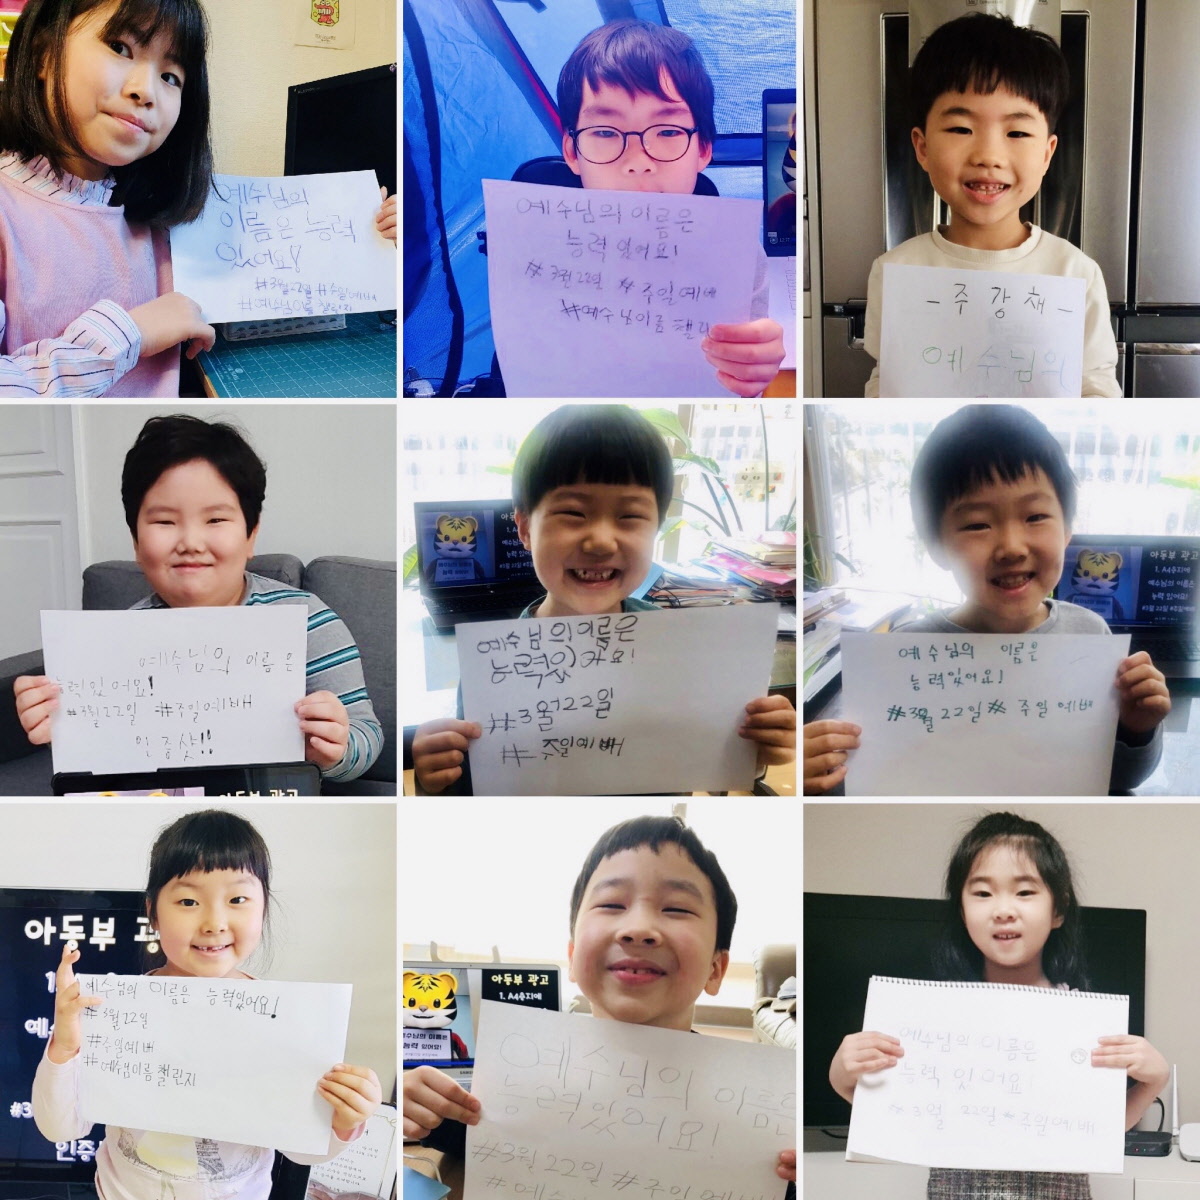 예수님의
이름은 능력
있어요!
#3월22일 #주일예배
#예수님이름 챌린지
예수님의 이름은
능력 있어요!
#3월22일 #주일예배
#예수님이름 챌린
- 주강채 -
예수님의
예수님의 이름은
능력있어요!
#3월22일 #주일예배
인증샷!!
아동부 광고
아동부
1. A4
예수님의
능력 있어
예수님의 이름은
능력있어요!
#3월22일
#주일예배
아동부 광고
1. A4용지에
예수님의 이름은
능력 있어요!
#3월 22일 #주일예배
예수님의 이름은
능력있어요!
#3월 22일 # 주일 예배
아동부 광
예수님의 이름은 능력있어요!
#3월22일
#주일예배
#예수님이름챌린지
인증
아동부 광고
1. A4용지에
예수님의 이름은
능력 있어요!
예수님의 이름은
능력있어요!
#3월22일 #주일예배
#예수
예수님의 이름은
능력 있어요!
#3월 22일 #주일예배